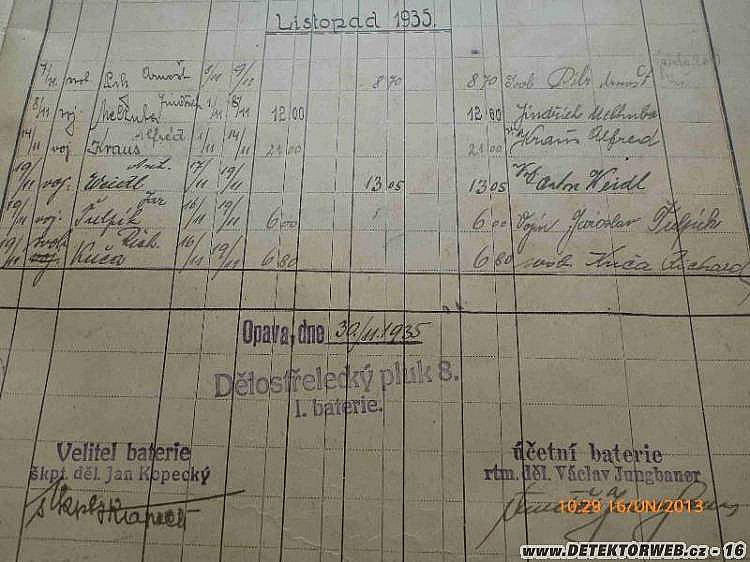 Listopad 1935.
7/11 svob Arnošt 9/11 8 70 8 70 svob Arnošt
8/11 voj. Jindřich 1/11 8/11 12 00 12 00 Jindřich
14/11 voj. Kraus Alfréd 1/11 14/11 21 00 21 00 Kraus Alfred
19/11 voj. Weidl Ant. 17/11 19/11 13 05 13 05 Anton Weidl
19/11 voj. Ťulpík Jar 16/11 19/11 6 00 6 00 Vojín Jaroslav Ťulpík
19/11 svob Kuča Rich. 16/11 19/11 6 80 6 80 svob Kuča Richard
Opava, dne 30/11. 1935
Dělostřelecký pluk 8.
1. baterie.
Velitel baterie účetní baterie
škpt. děl. Jan Kopecký rtm. děl. Václav Jungbaner
10:29 16/JUN/2013
www.DETEKTORWEB.cz - 16